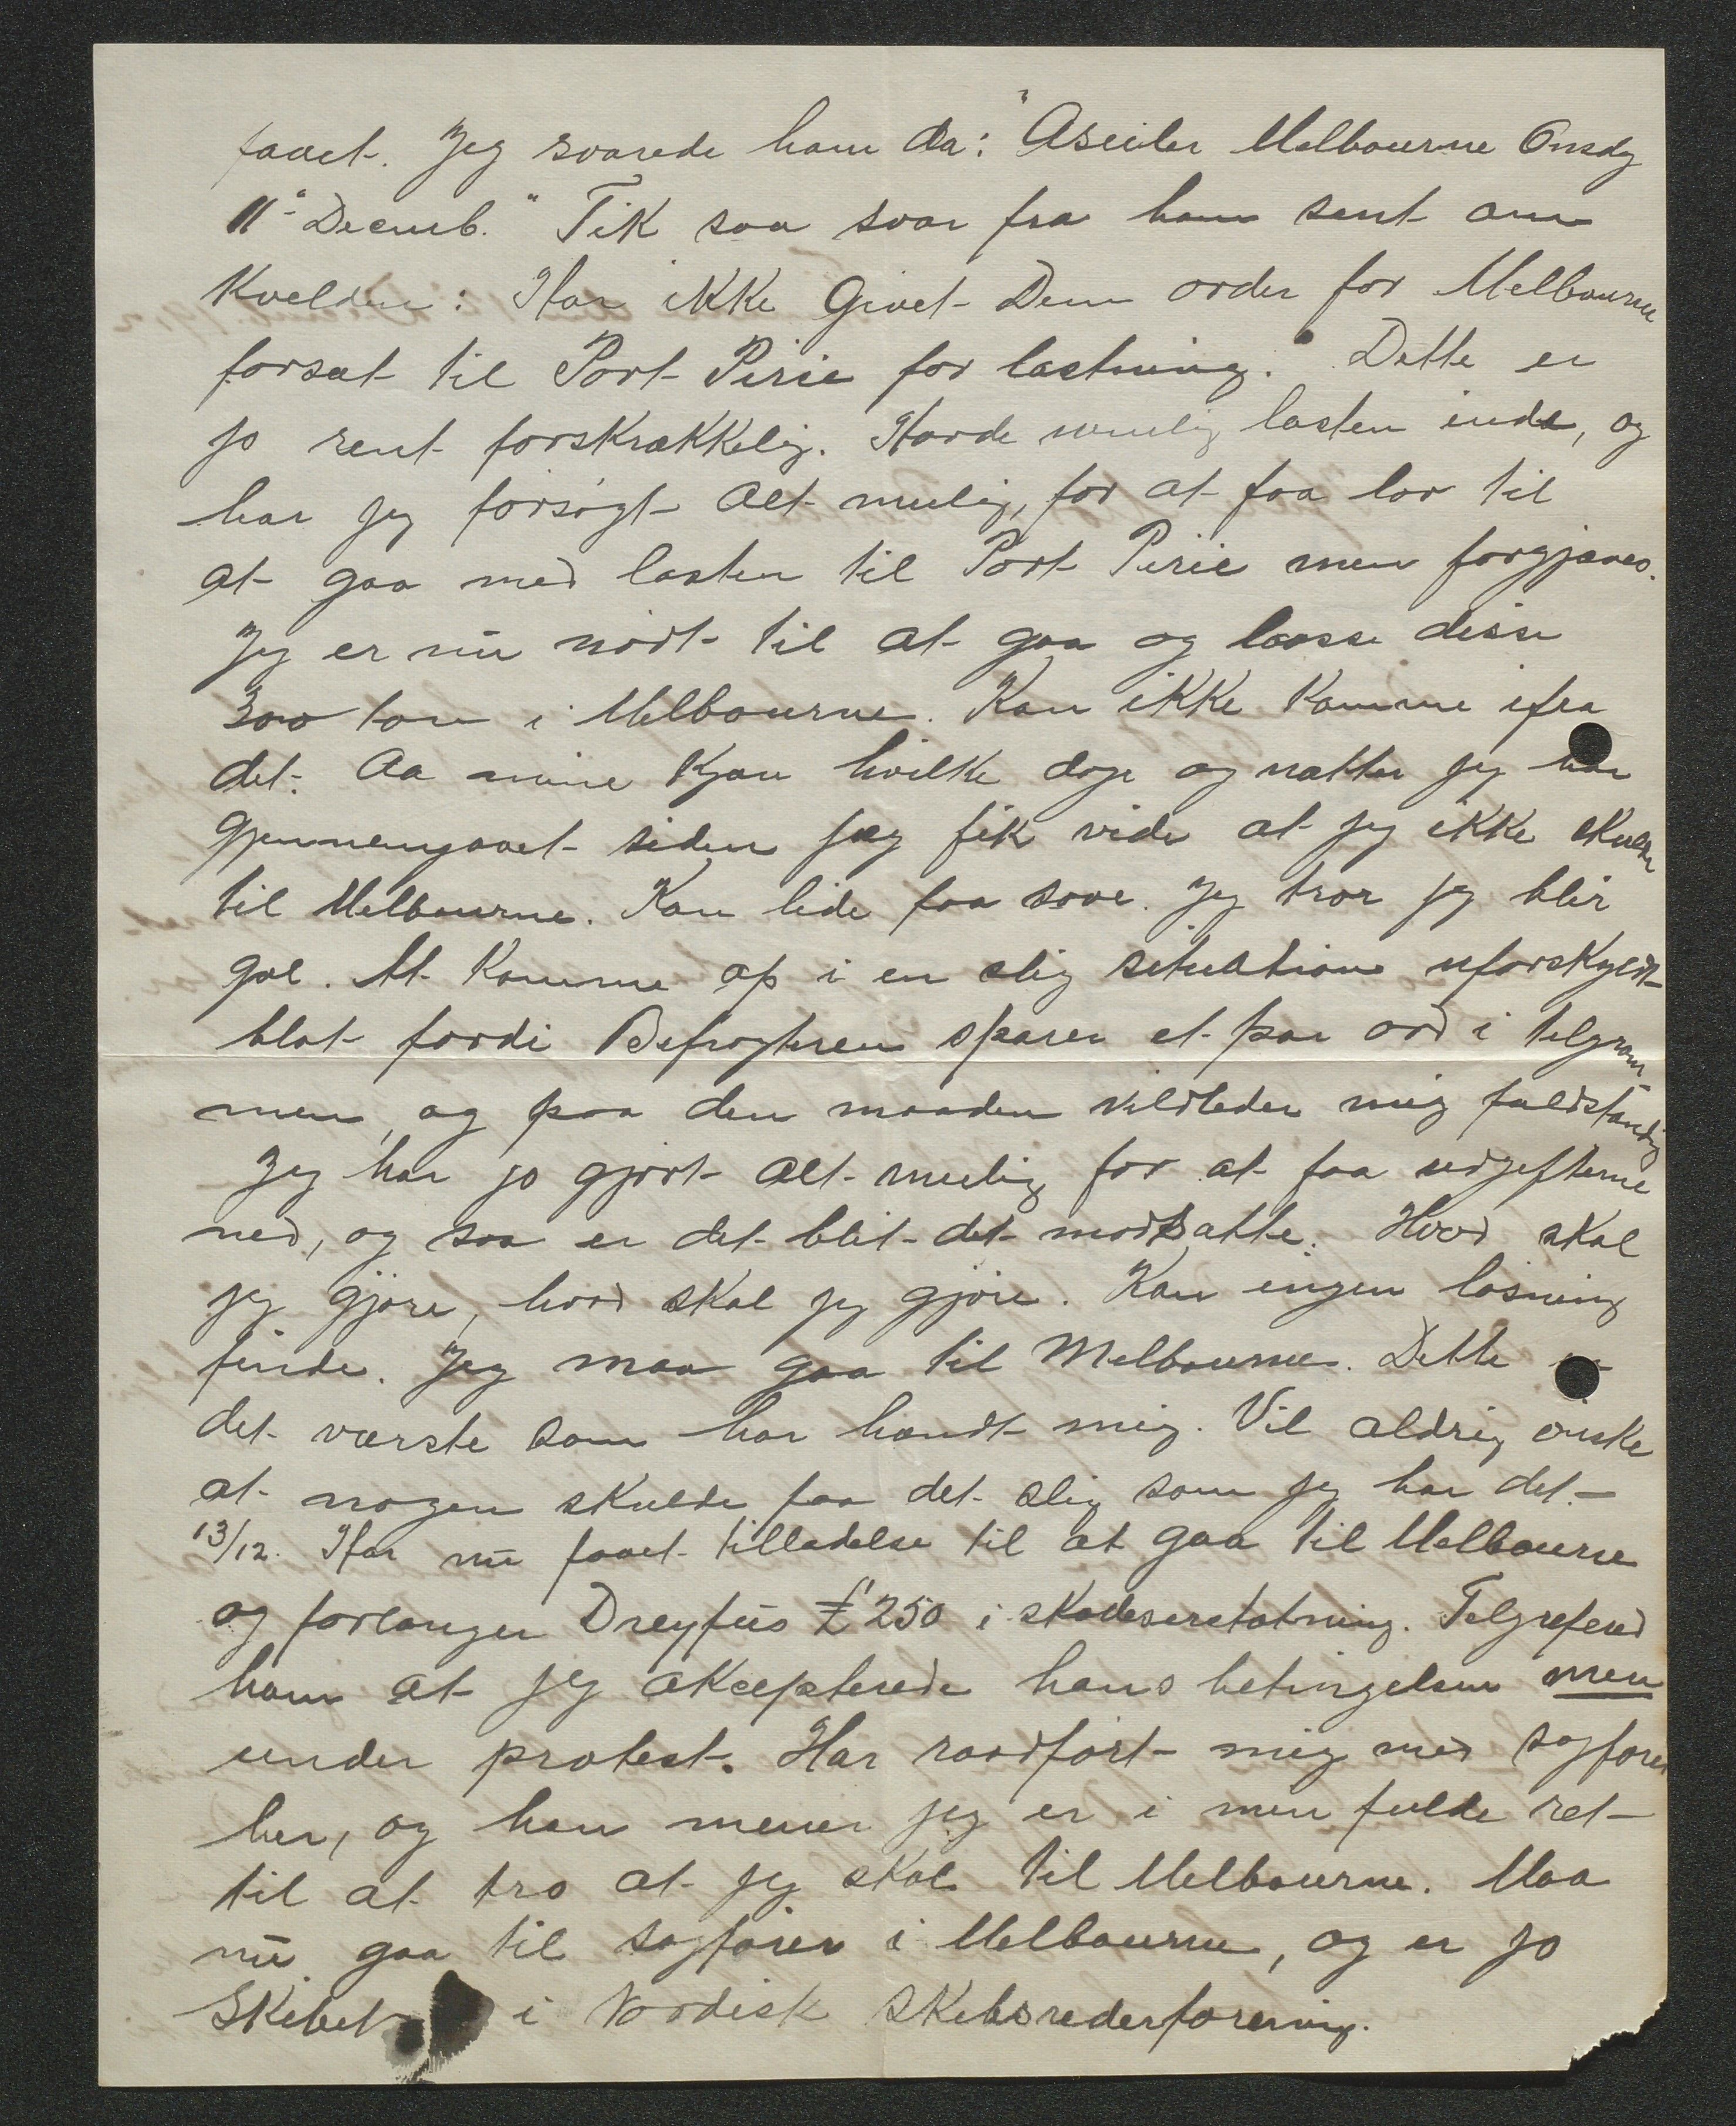 faaet. Jeg svarede ham da: "Aseiler Melbourne Onsdg
11te Decemb." Fik saa svar fra ham sent om
Kvelden: Har ikke Givet Dem order for Melbourne
forsæt til Port Pirie for lastning." Dette er
jo rent forskrækkelig. Havde nemlig lasten inde, og
har jeg forsøgt Alt mulig, for at faa lov til
at gaa med lasten til Port Pirie men forgjæves.
Jeg er nu nødt til at gaa og losse disse
300 ton i Melbourne. Kan ikke komme ifra
det. Aa mine Kjære hvilke dage og nætter jeg har
Gjennemgaaet siden jeg fik vide at jeg ikke skulde
til Melbourne. Kan lide faa sove. Jeg tror jeg blir
gal. At Komme op i en slig situation uforskyldt
blot fordi Befragteren sparer et par ord i telgram-
men, og paa den maaden vildleder mig fuldstændig
Jeg har jo gjort Alt mulig for at faa udgifterne
ned, og saa er det blit det modsatte. Hvad skal
jeg gjøre, hvad skal jeg gjøre. Kan ingen løsning
finde. Jeg maa gaa til Melbourne. Dette er
det værste som har hændt mig. Vil aldrig ønske
at nogen skulde faa det slig som jeg har det.-
13/12. Har nu faaet tilladelse til at gaa til Melbourne
og forlanger Dreyfus £ 250 i skadeserstatning. Telgrafered
ham at jeg akcepterede hans betingelser men
under protest. Har raadført mig med sagfører
her, og han mener jeg er i min fulde ret
til at tro at jeg skal til Melbourne. Maa
nu gaa til sagfører i Melbourne, og er jo
Skibet i Nordisk Skibsrederforening.